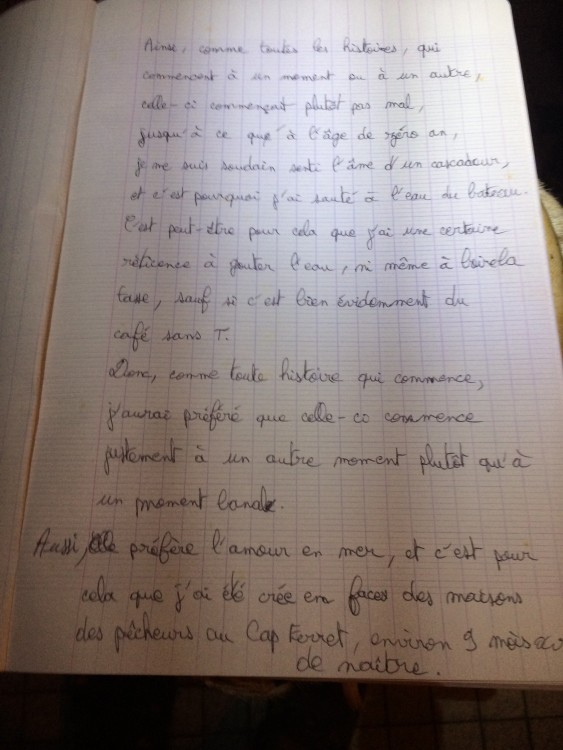 Ainsi, comme toutes les histoires, qui
commencent à un moment ou à un autre,
celle-ci commençait plutôt pas mal,
jusqu'à ce que à l'âge de zéro an,
je me suis soudain senti l'âme d'un cascadeur,
et c'est pourquoi j'ai sauté à l'eau du bateau.
C'est peut-être pour cela que j'ai une certaine
réticence à gouter l'eau, ni même à boire la
tasse, sauf si c'est bien évidemment du
café sans T.
Donc, comme toute histoire qui commence,
j'aurai préféré que celle-ci commence
justement à un autre moment plutôt qu'à
un moment banal.
Aussi, préfère l'amour en mer, et c'est pour
cela que j'ai été crée en faces des maisons
des pêcheurs au Cap Ferret, environ 9 mois
de naître.